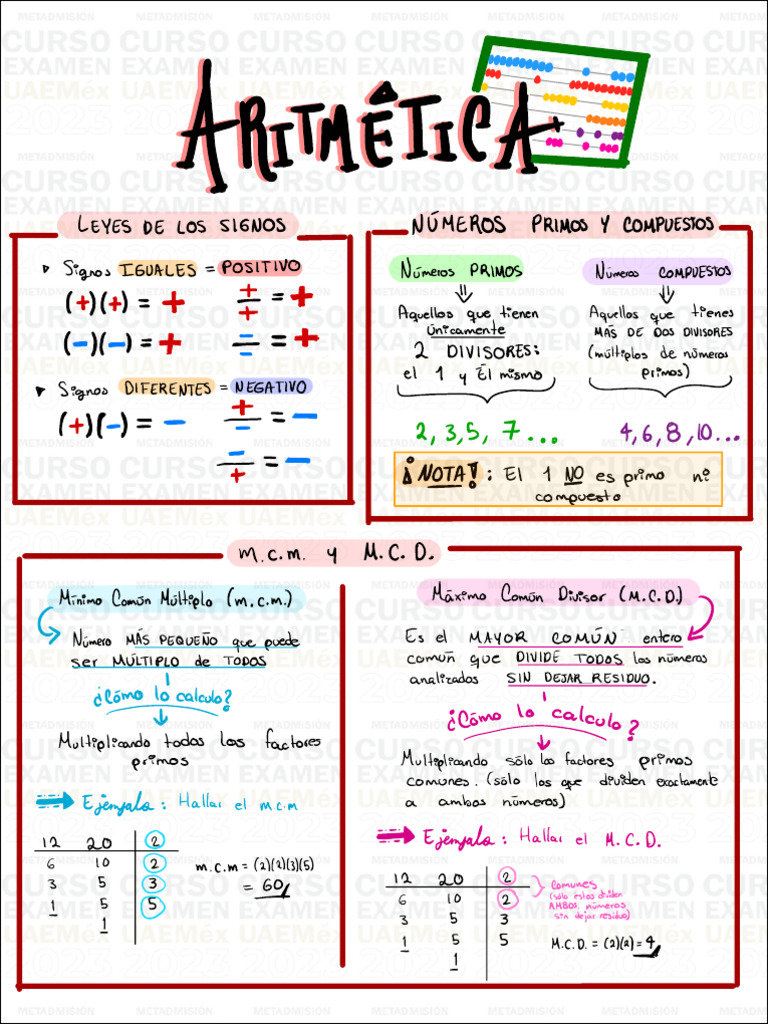 ARITMÉTICA
LEYES DE LOS SIGNOS
Signos IGUALES = POSITIVO
(+)(+) = +
+/+ = +
(-)(-) = +
-/- = +
Signos DIFERENTES = NEGATIVO
(+)(-) = -
+/- = -
-/+ = -
NÚMEROS PRIMOS Y COMPUESTOS
Números PRIMOS
Aquellos que tienen
Únicamente
2 DIVISORES:
el 1 y Él mismo
2, 3, 5, 7 ...
Números COMPUESTOS
Aquellos que tienes
MÁS DE DOS DIVISORES
(múltiplos de números
primos)
4, 6, 8, 10...
¡NOTA!: El 1 NO es primo ni
compuesto
m.c.m. y M.C.D.
Mínimo Común Múltiplo (m.c.m.)
Número MÁS PEQUEÑO que puede
ser MÚLTIPLO de TODOS
¿Cómo lo calculo?
Multiplicando todos los factores
primos
Ejemplo: Hallar el m.c.m
12 20 2
6 10 2
3 5 3
1 5 5
1
m.c.m = (2)(2)(3)(5)
= 60
Máximo Común Divisor (M.C.D.)
Es el MAYOR COMÚN entero
común que DIVIDE TODOS los números
analizados SIN DEJAR RESIDUO.
¿Cómo lo calculo?
Multiplicando sólo los factores primos
comunes (sólo los que dividen exactamente
a ambos números)
Ejemplo: Hallar el M.C.D.
12 20 2
6 10 2
3 5 3
1 5 5
1
COMUNES
(sólo éstos dividen
AMBOS números
sin dejar residuo)
M.C.D. = (2)(2) = 4
METADMISIÓN
CURSO
EXAMEN
UAEMéx
2023